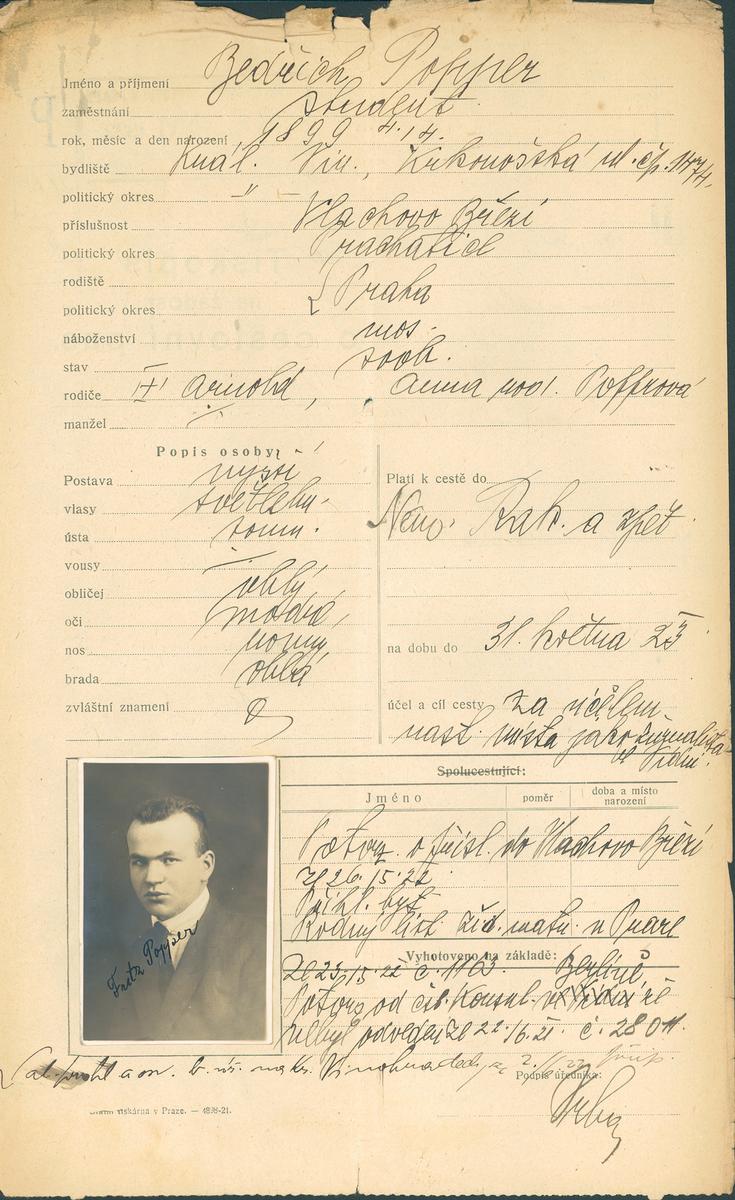 Jméno a příjmení Bedřich Popper
zaměstnání student
rok, měsíc a den narození 1899 4.14.
bydliště Král. Vin., Krkonošská ul. čp.
politický okres — " —
příslušnost Vlachovo Březí
politický okres Prachatice
rodiště Praha
politický okres
náboženství mos.
stav svob.
rodiče Arnold, Anna roz. Popprová
manžel
Popis osoby:
Postava vyšší
vlasy světlehn.
ústa soum.
vousy —
obličej oblý
oči modré
nos norm.
brada oblá
zvláštní znamení
Platí k cestě do
Něm. Rak. a zpět
na dobu do 31. května 23
účel a cíl cesty za účelem
nast. místa jako žurnalista
ve Vídni.
Spolucestující:
Jméno poměr doba a místo narození
Fritz Popper
Potvrz. o přísl. do Vlachovo Březí
Přihl. byt
Rodný list žid. matr. v Praze
Vyhotoveno na základě:
Berlíně
Potvrz. od čsl. konsul. ve Vídni
Podpis úředníka:
tiskárna v Praze. — 4898-21.